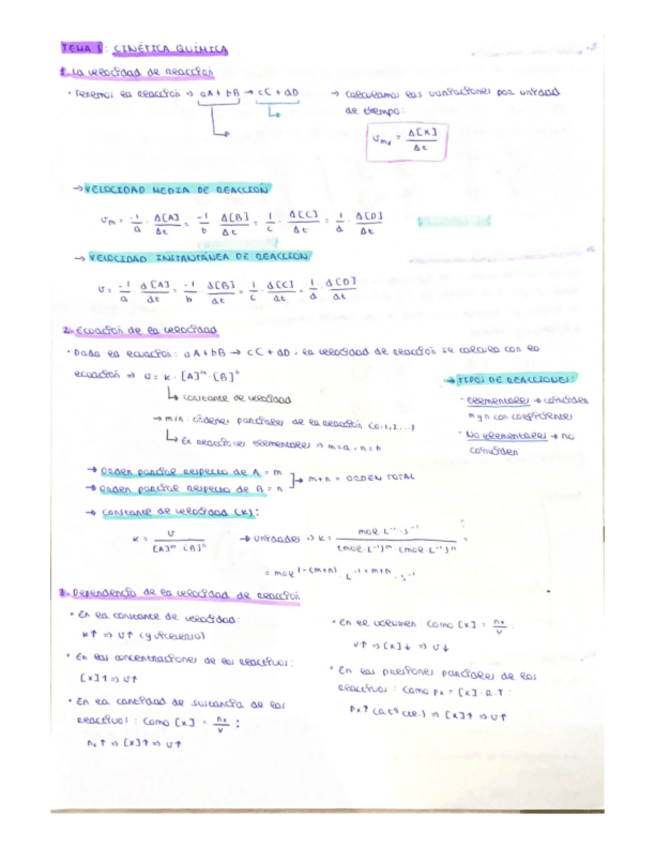 TEMA 5: CINÉTICA QUÍMICA
1. La velocidad de reacción
· Tenemos la reacción ⇒ aA + bB → cC + dD
→ Calculamos las variaciones por unidad
de tiempo:
Δ[X] / Δt
→ VELOCIDAD MEDIA DE REACCIÓN
υm = -1/a · Δ[A]/Δt = -1/b Δ[B]/Δt = 1/c · Δ[C]/Δt = 1/d · Δ[D]/Δt
→ VELOCIDAD INSTANTÁNEA DE REACCIÓN
υ = -1/a d[A]/dt = -1/b d[B]/dt = 1/c · d[C]/dt = 1/d · d[D]/dt
2. Ecuación de la velocidad
· Dada la ecuación: aA + bB → cC + dD, la velocidad de reacción se calcula con la
ecuación ⇒ υ = k · [A]ᵐ · [B]ⁿ
↳ constante de velocidad
→ m i n: órdenes parciales de la reacción (0,1,2...)
↳ En reacciones elementales ⇒ m=a, n=b
→ TIPOS DE REACCIONES:
· elementales → coinciden
m y n con coeficientes
· No elementales → no
coinciden
→ Orden parcial respecto de A = m
→ Orden parcial respecto de B = n
m+n = ORDEN TOTAL
→ Constante de velocidad (k):
k = υ / [A]ᵐ · [B]ⁿ → unidades ⇒ k = mol·L⁻¹·s⁻¹ / (mol·L⁻¹)ᵐ · (mol·L⁻¹)ⁿ =
= mol^1-(m+n) · L^-1+m+n · s⁻¹
3. Dependencia de la velocidad de reacción
· En la constante de velocidad:
k↑ ⇒ υ↑ (y viceversa)
· En las concentraciones de los reactivos:
[x]↑ ⇒ υ↑
· En la cantidad de sustancia de los
reactivos: Como [x] = nx/V :
nx↑ ⇒ [x]↑ ⇒ υ↑
· En el volumen: Como [x] = nx/V :
V↑ ⇒ [x]↓ ⇒ υ↓
· En las presiones parciales de los
reactivos: Como px = [x] · R · T:
Px↑ (a tª cte.) ⇒ [x]↑ ⇒ υ↑